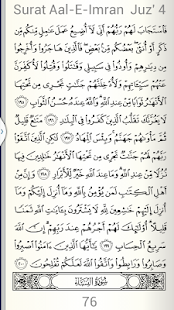 Surat Aal-E-Imran Juz' 4
فَاسْتَجَابَ لَهُمْ رَبُّهُمْ أَنِّي لَا أُضِيعُ عَمَلَ عَامِلٍ مِنْكُمْ مِنْ
ذَكَرٍ أَوْ أُنْثَىٰ بَعْضُكُمْ مِنْ بَعْضٍ فَالَّذِينَ هَاجَرُوا وَأُخْرِجُوا
مِنْ دِيَارِهِمْ وَأُوذُوا فِي سَبِيلِي وَقَاتَلُوا وَقُتِلُوا لَأُكَفِّرَنَّ
عَنْهُمْ سَيِّئَاتِهِمْ وَلَأُدْخِلَنَّهُمْ جَنَّاتٍ تَجْرِي مِنْ تَحْتِهَا
الْأَنْهَارُ ثَوَابًا مِنْ عِنْدِ اللَّهِ وَاللَّهُ عِنْدَهُ حُسْنُ الثَّوَابِ ﴿١٩٥﴾
لَا يَغُرَّنَّكَ تَقَلُّبُ الَّذِينَ كَفَرُوا فِي الْبِلَادِ ﴿١٩٦﴾ مَتَاعٌ قَلِيلٌ
ثُمَّ مَأْوَاهُمْ جَهَنَّمُ وَبِئْسَ الْمِهَادُ ﴿١٩٧﴾ لَكِنِ الَّذِينَ اتَّقَوْا
رَبَّهُمْ لَهُمْ جَنَّاتٌ تَجْرِي مِنْ تَحْتِهَا الْأَنْهَارُ خَالِدِينَ فِيهَا
نُزُلًا مِنْ عِنْدِ اللَّهِ وَمَا عِنْدَ اللَّهِ خَيْرٌ لِلْأَبْرَارِ ﴿١٩٨﴾ وَإِنَّ مِنْ
أَهْلِ الْكِتَابِ لَمَنْ يُؤْمِنُ بِاللَّهِ وَمَا أُنْزِلَ إِلَيْكُمْ وَمَا
أُنْزِلَ إِلَيْهِمْ خَاشِعِينَ لِلَّهِ لَا يَشْتَرُونَ بِآيَاتِ اللَّهِ ثَمَنًا
قَلِيلًا أُولَٰئِكَ لَهُمْ أَجْرُهُمْ عِنْدَ رَبِّهِمْ إِنَّ اللَّهَ
سَرِيعُ الْحِسَابِ ﴿١٩٩﴾ يَا أَيُّهَا الَّذِينَ آمَنُوا اصْبِرُوا
وَصَابِرُوا وَرَابِطُوا وَاتَّقُوا اللَّهَ لَعَلَّكُمْ تُفْلِحُونَ ﴿٢٠٠﴾
سُورَةُ النِّسَاءِ
76